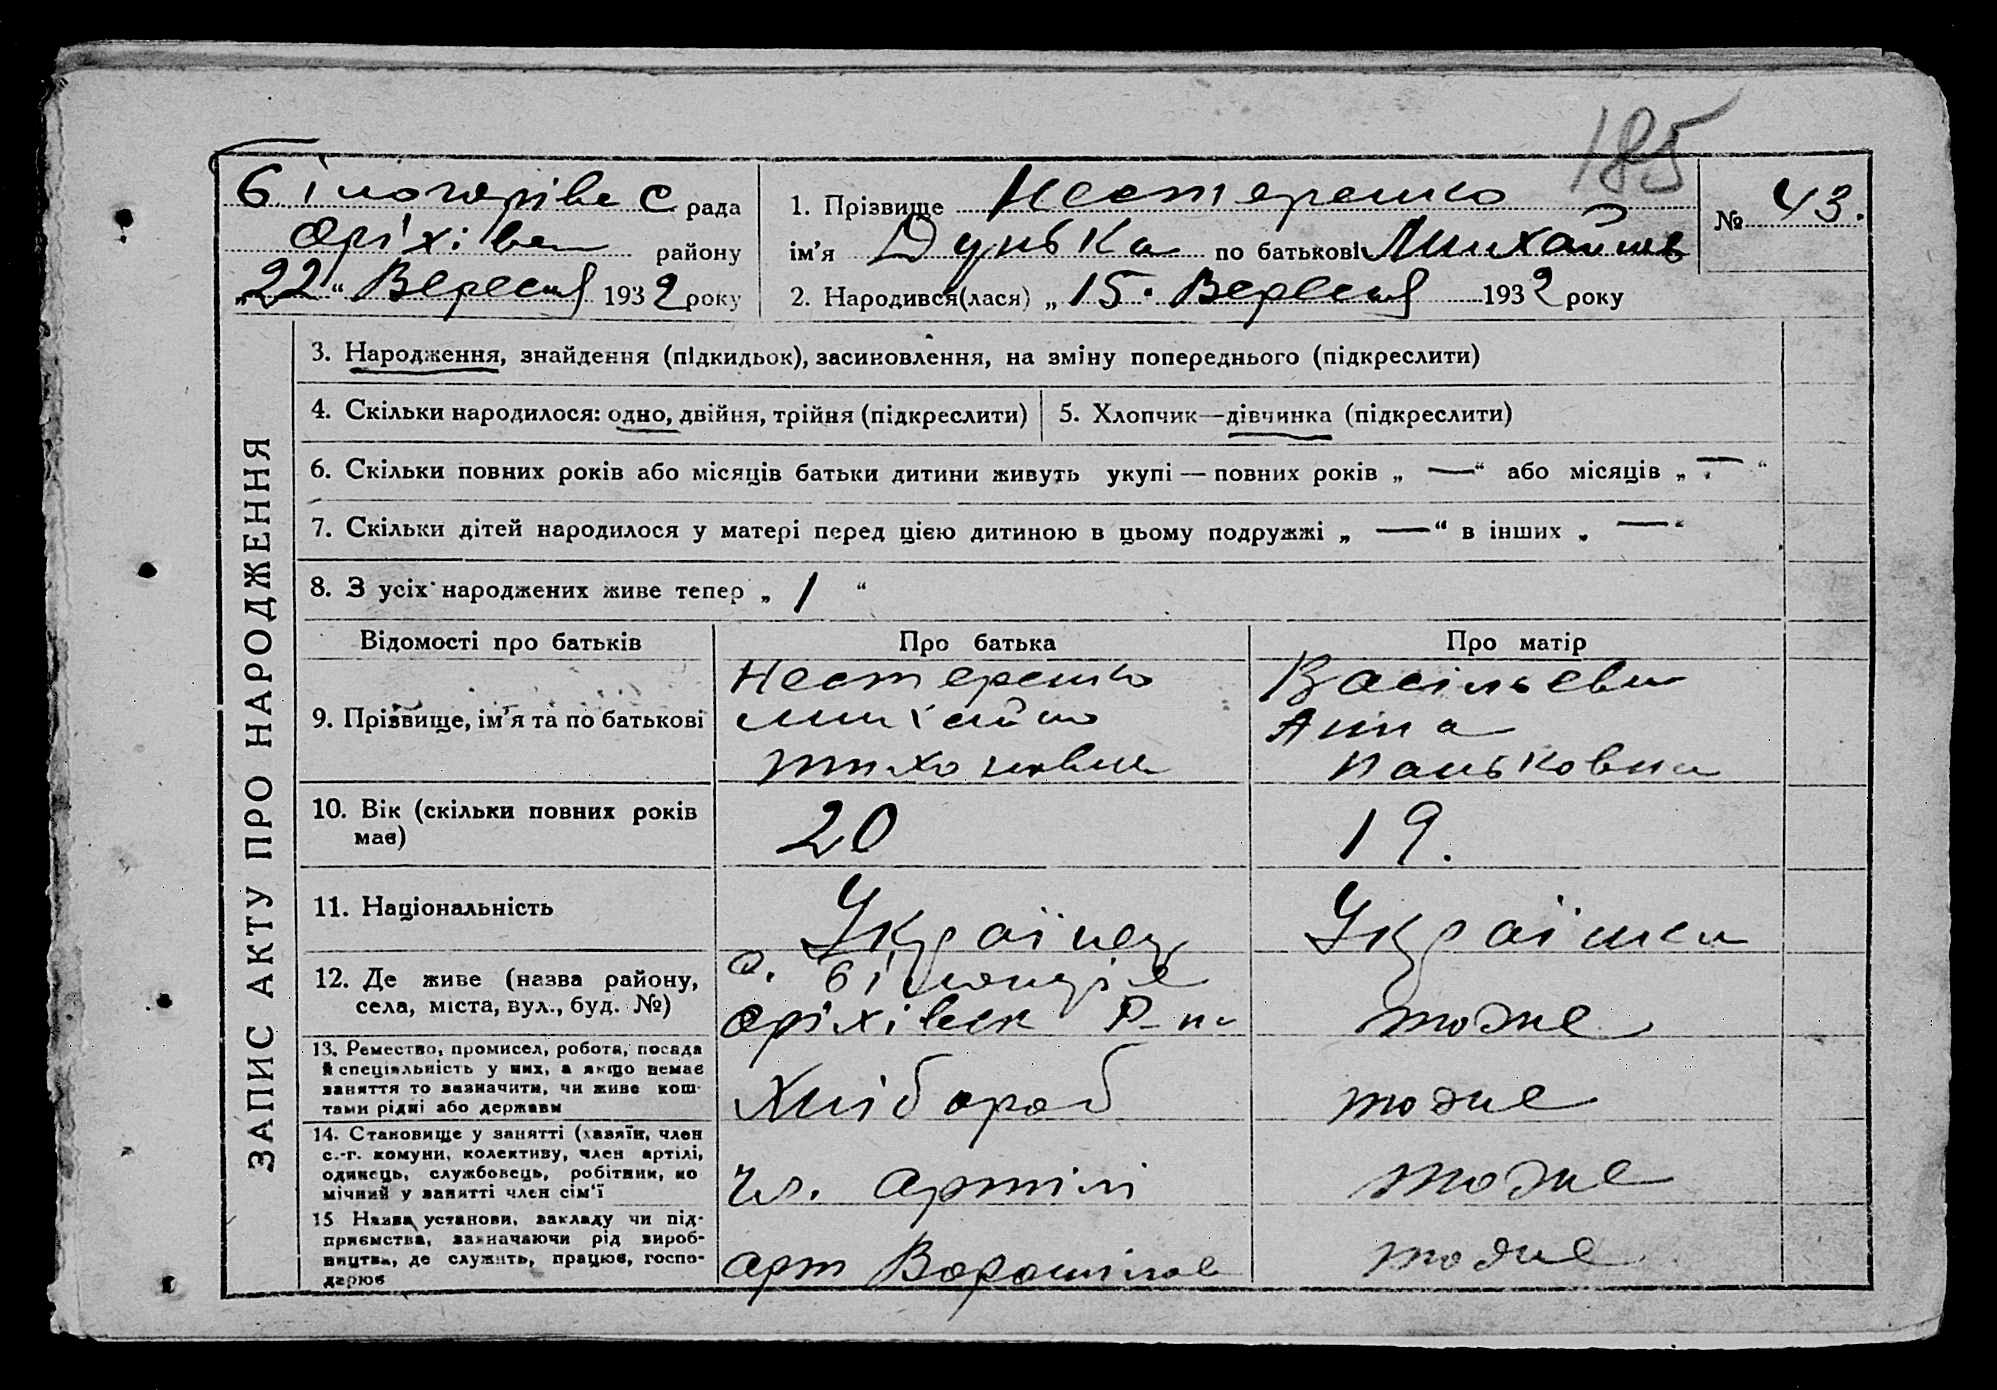 185
Білогорівс С рада
Оріхівсь району
„22“ Вересня 1932 року
1. Прізвище Нестеренко
ім'я Дунька по батькові Михайлів
2. Народився(лася) „15. Вересня 1932 року
№ 43.
ЗАПИС АКТУ ПРО НАРОДЖЕННЯ
3. Народження, знайдення (підкидьок), засиновлення, на зміну попереднього (підкреслити)
4. Скільки народилося: одно, двійня, трійня (підкреслити)
5. Хлопчик—дівчинка (підкреслити)
6. Скільки повних років або місяців батьки дитини живуть укупі — повних років „ — “ або місяців „ — “
7. Скільки дітей народилося у матері перед цією дитиною в цьому подружжі „ — “ в інших „ — “
8. З усіх народжених живе тепер „ 1 “
Відомості про батьків Про батька Про матір
9. Прізвище, ім'я та по батькові
Нестеренко
Михайло
Тихонович
Васільєва
Анна
Паньковна
10. Вік (скільки повних років
має)
20
19.
11. Національність
Українец
Українка
12. Де живе (назва району,
села, міста, вул., буд. №)
с. Білогоріє
Оріхівськ Р-н
тоже
13. Ремество, промисел, робота, посада
й спеціяльність у них, а якщо немає
заняття то зазначити, чи живе кош-
тами рідні або держави
Хлібороб
тоже
14. Становище у занятті (хазяїн, член
с.-г. комуни, колективу, член артілі,
одинець, службовець, робітник, по
мічний у занятті член сім'ї
Чл. артілі
тоже
15 Назва установи, закладу чи під-
приємства, зазначаючи рід вироб-
ництва, де служить, працює, госпо-
дарює
арт Ворошілов
тоже